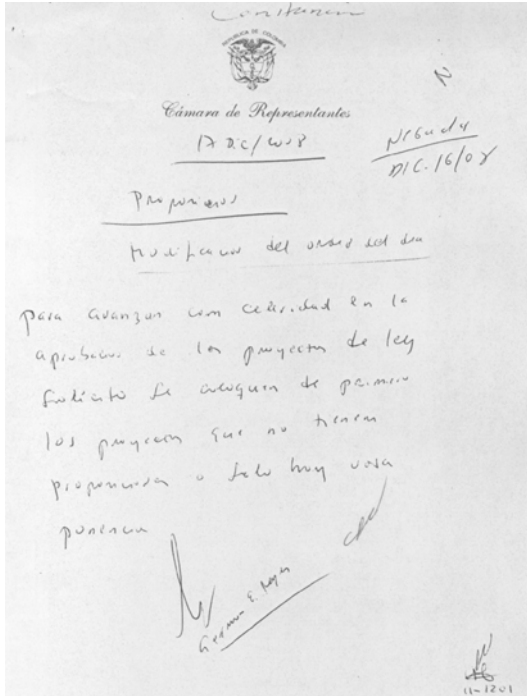 Constancia
REPUBLICA DE COLOMBIA
N
Cámara de Representantes
17 Dic/2008
Negada
DIC. 16/08
Proposicion
Modificacion del orden del dia
para avanzar con celeridad en la
aprobacion de los proyectos de ley
Solicito se coloquen de primero
los proyectos que no tienen
proposiciones o solo hay una
ponencia
German E. Reyes